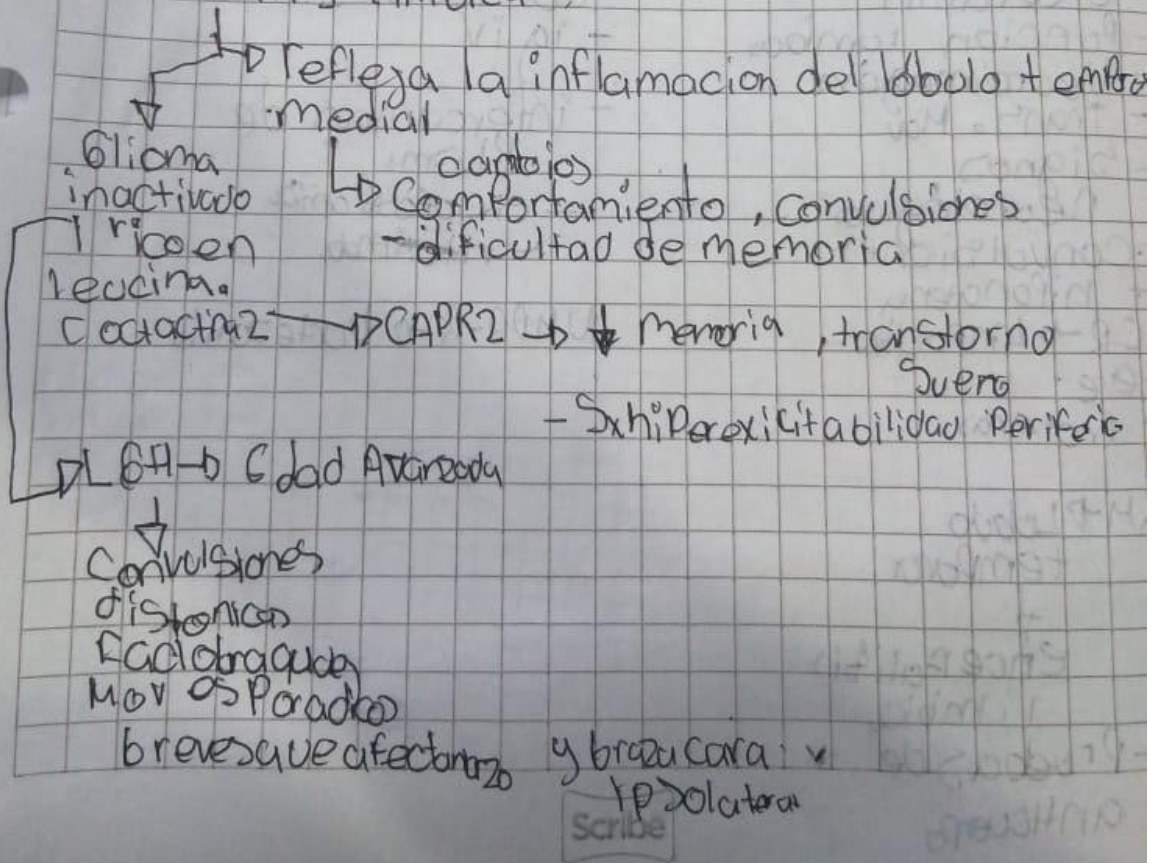 reflega la inflamacion del lóbulo tempro
medial
Glioma
inactivado
1 rico en
leucina.
cambios
Comportamiento, convulsiones
- dificultad de memoria
CAPR2 → ↓ memoria, transtorno
Sueño
- Sx hiperexicitabilidad Periferic
LGA → Edad Avanzada
Convulsiones
distonicas
Mov esporadicos
breves que afectan y brazo cara
ipsolateral
Scribe